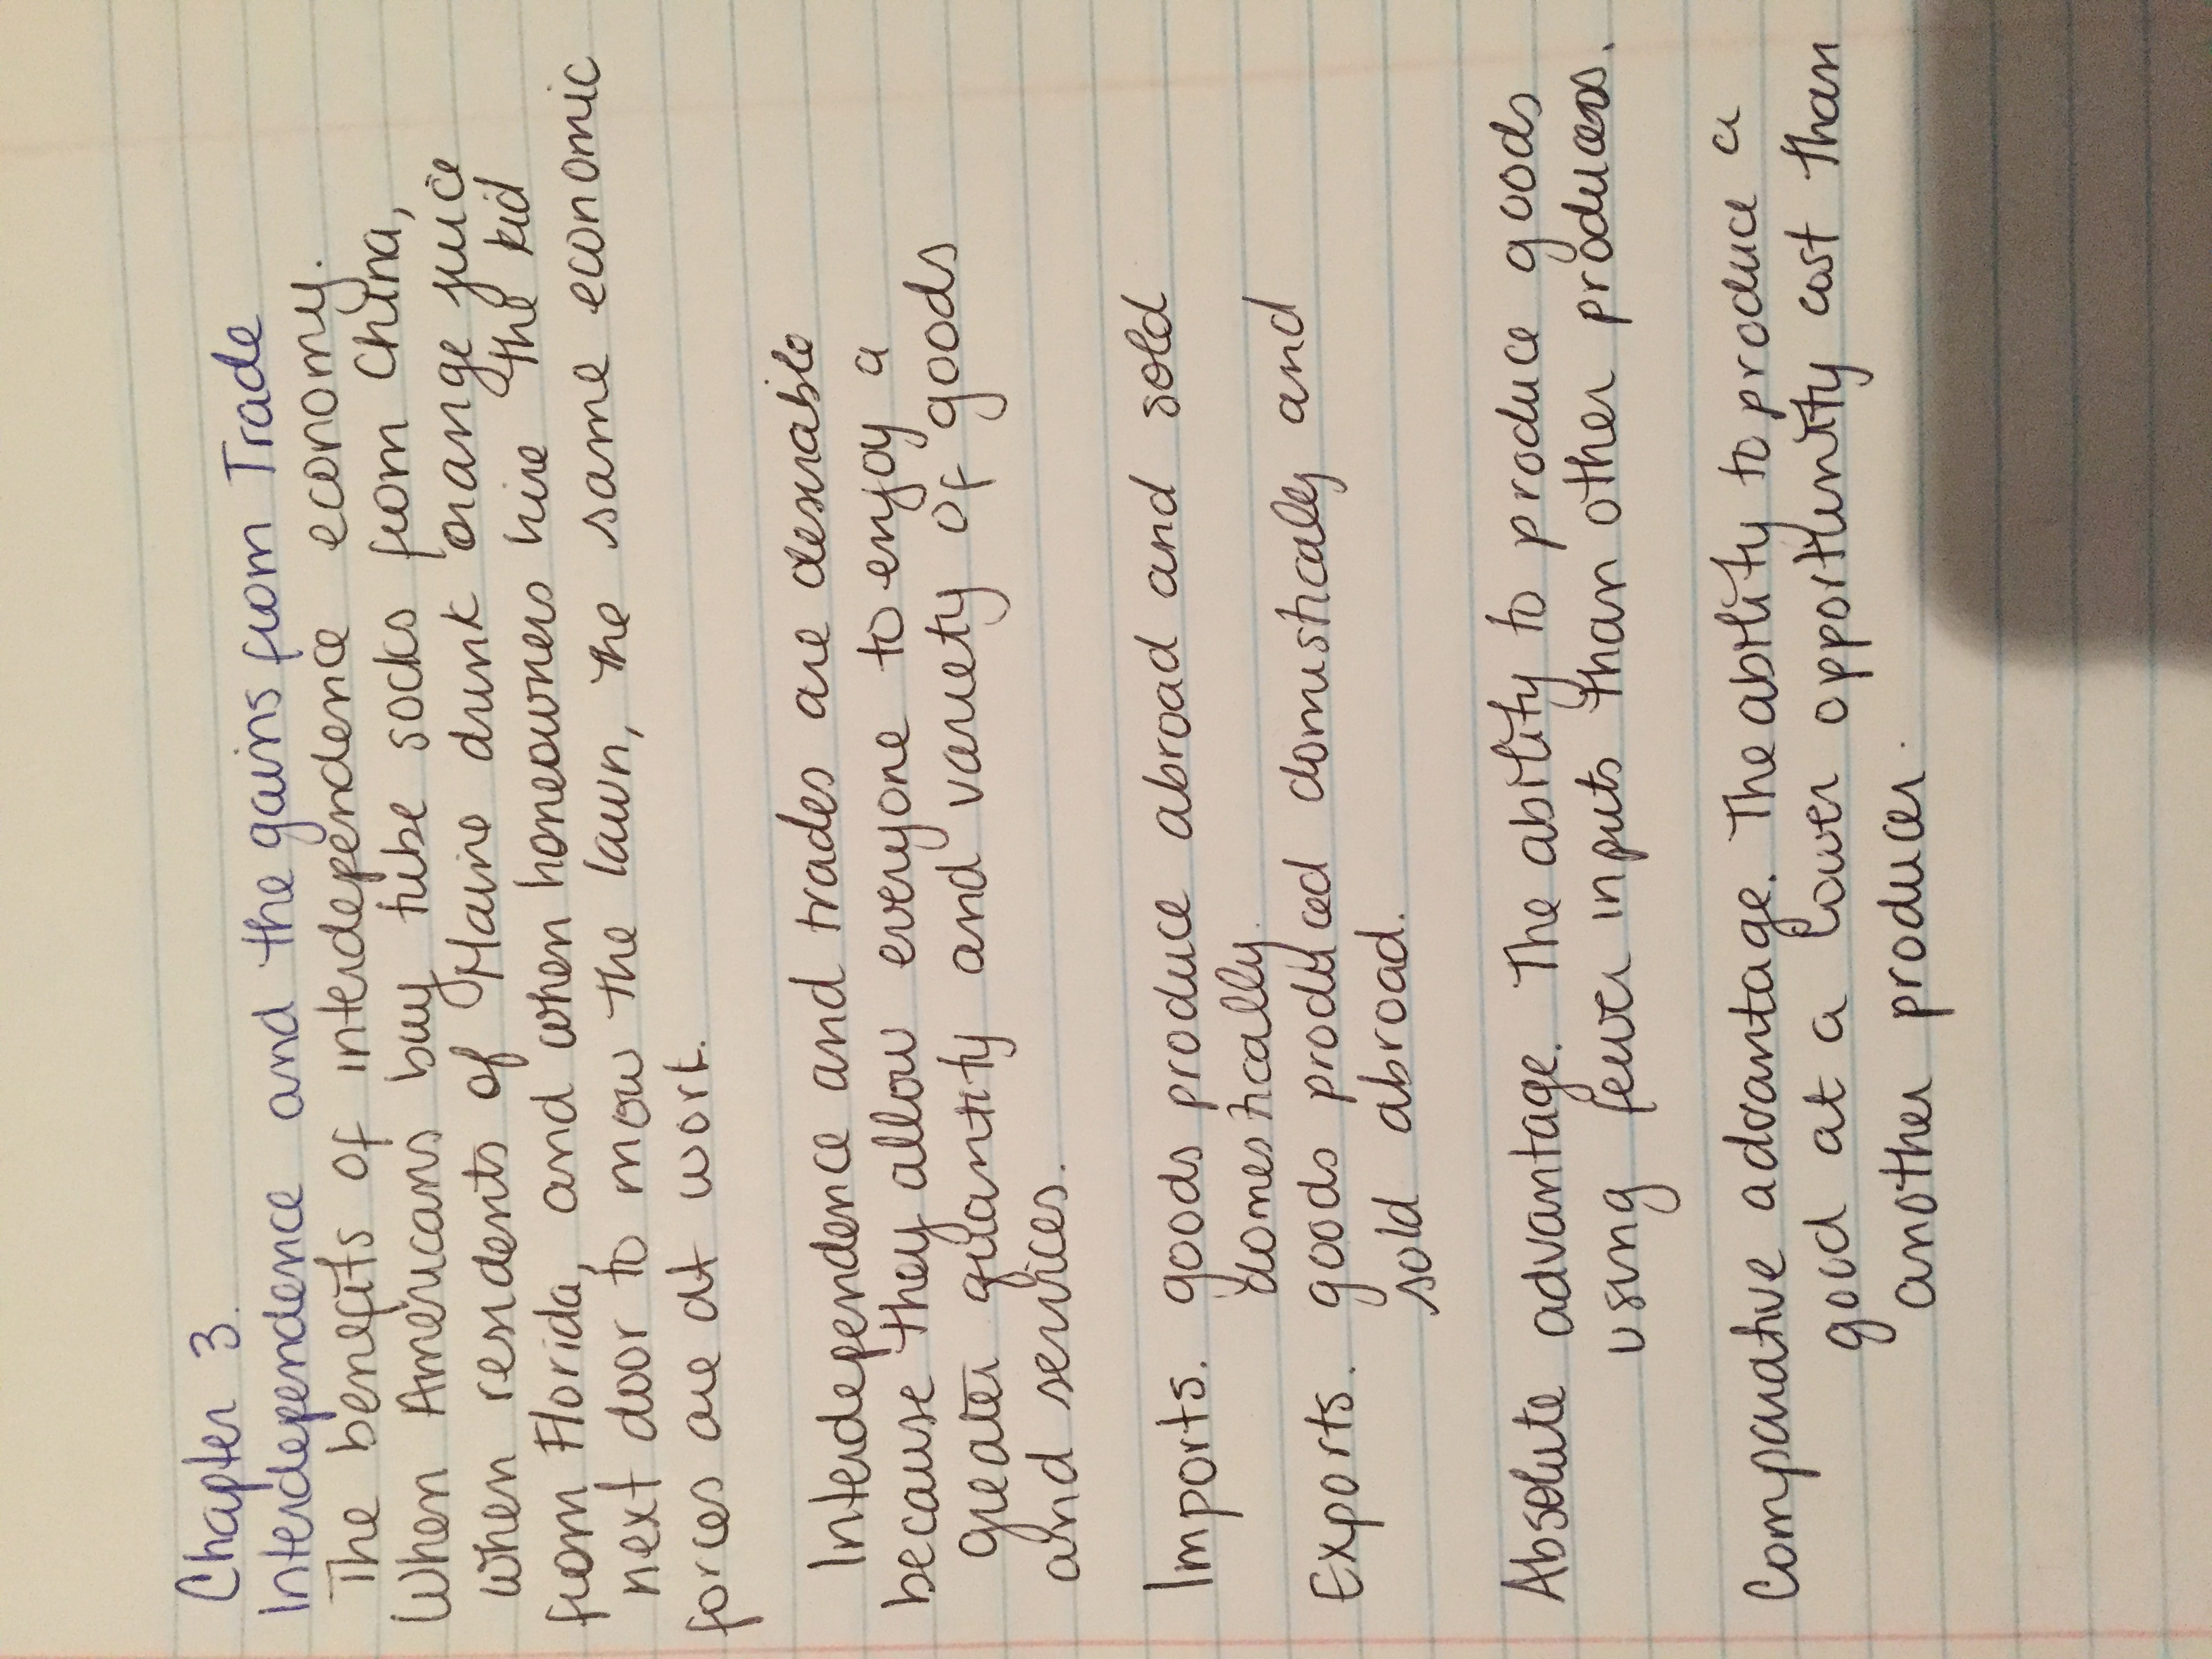 Chapter 3.
Interdependence and the gains from Trade
The benefits of interdependence economy.
When Americans buy tube socks from China,
when residents of Maine drunk orange juice
from Florida, and when homeowners hire the kid
next door to mow the lawn, the same economic
forces are at work.
Interdependence and trades are desirable
because they allow everyone to enjoy a
greater quantity and variety of goods
and services.
Imports. goods produce abroad and sold
domestically.
Exports. goods produced domustically and
sold abroad.
Absolute advantage. The ability to produce goods
using fewer inputs than other producers.
Comparative advantage. The ability to produce a
good at a lower opportunity cost than
another producer.